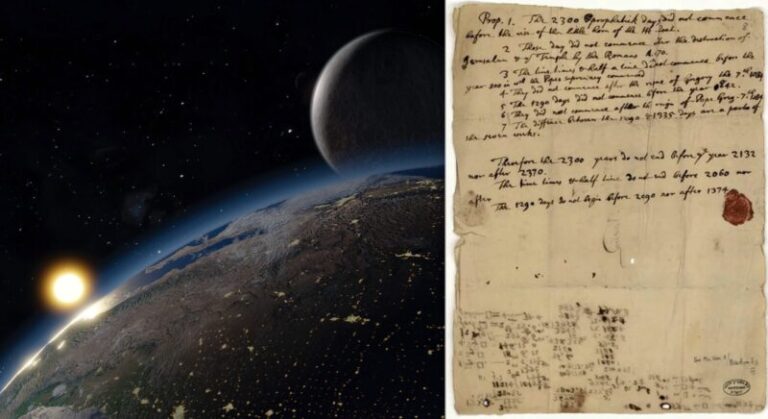 Prop. 1. The 2300 prophetick days did not commence
before the rise of the little horn of the He Goat.
2 Those day did not commence after the destruction of
Jerusalem & ye Temple by the Romans A. 70.
3 The time times & half a time did not commence before the
year 800 in wch the Popes supremacy commenced
4 They did not commence after the reigne of Gregory the 7th. 1084
5 The 1290 days did not commence before the year 842.
6 They did not commence after the reign of Pope Greg. 7th. 1084
7 The difference between the 1290 & 1335 days are a parts of
the seven weeks.
Therefore the 2300 years do not end before ye year 2132
nor after 2370.
The time times & half time do not end before 2060 nor
after
The 1290 days do not begin before 2090 nor after 1374